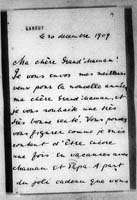 GANDUT
le 30 décembre 1909
Ma chère Grand'Maman!
Je vous envoie mes meilleurs
vœux pour la nouvelle année
ma chère Grand'Maman et
je vous souhaite une très
très bonne santé. Vous
pouvez vous
figurer comme je suis
content d'être encore
une fois en vacances avec
Maman et Papa. A part
du joli cadeau que vous